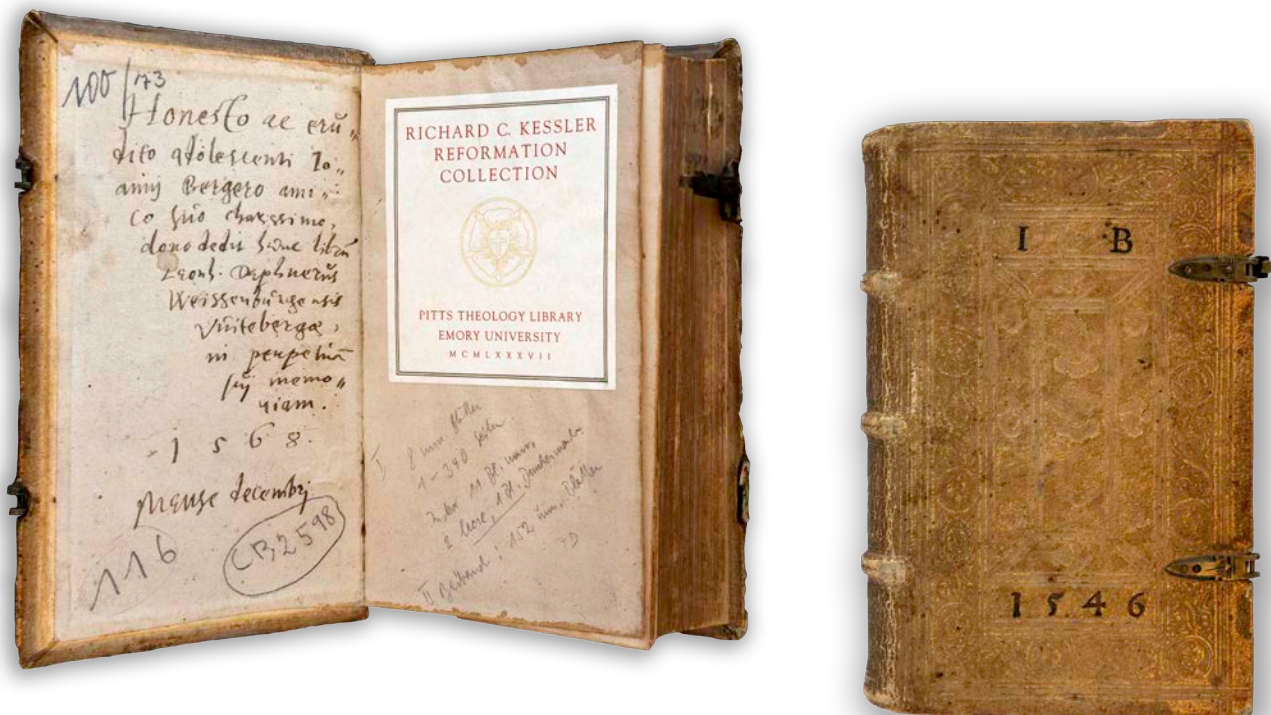 100/173
Honesto ac eru„
dito adolescenti Io„
anni Bergero ami„
co suo charissimo,
dono dedit hunc librū
Leonh. Daphnerus
Weissenburgensis
Vuitebergæ,
in perpetuā
sui memo„
riam.
1 5 6 8.
Mense decembri
116
CB2598
RICHARD C. KESSLER
REFORMATION
COLLECTION
PITTS THEOLOGY LIBRARY
EMORY UNIVERSITY
MCMLXXXVII
I 8 unn Blätter
1-340 Seiten
11 Bl. unn.
2 leere, 1 Bl. Druckermarke
II 152 unn. Blätter
I B
1546